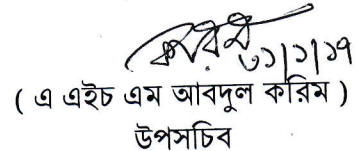 করিম
৩১/১/১৭
( এ এইচ এম আবদুল করিম )
উপসচিব